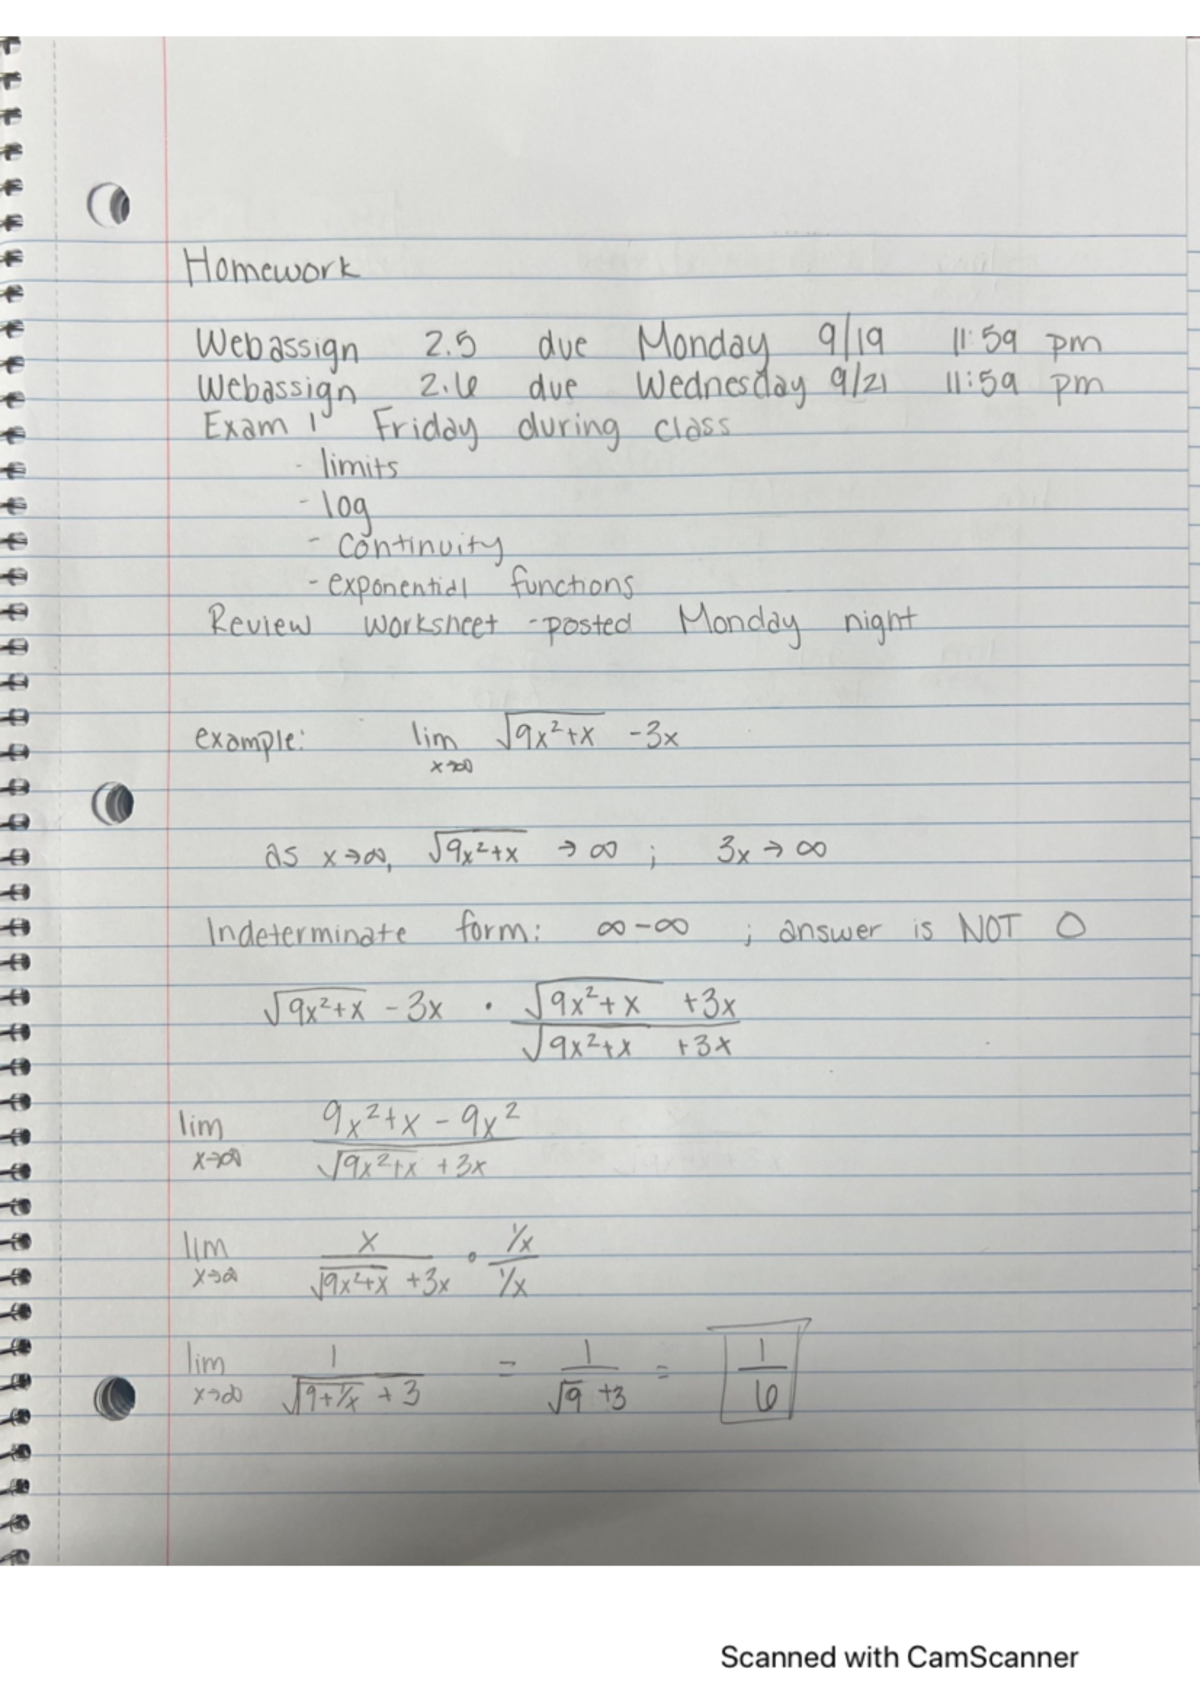 Homework
Webassign 2.5 due Monday 9/19 11:59 pm
Webassign 2.6 due Wednesday 9/21 11:59 pm
Exam 1 Friday during class
- limits
- log
- continuity
- exponential functions
Review worksheet - posted Monday night
example: lim x→∞ √(9x²+x) - 3x
as x→∞, √(9x²+x) → ∞ ; 3x → ∞
Indeterminate form: ∞-∞ ; answer is NOT 0
√(9x²+x) - 3x · (√(9x²+x) + 3x)/(√(9x²+x) + 3x)
lim x→∞ (9x²+x - 9x²)/(√(9x²+x) + 3x)
lim x→∞ x/(√(9x²+x) + 3x) · (1/x)/(1/x)
lim x→∞ 1/(√(9+1/x) + 3) = 1/(√9 + 3) = 1/6
Scanned with CamScanner